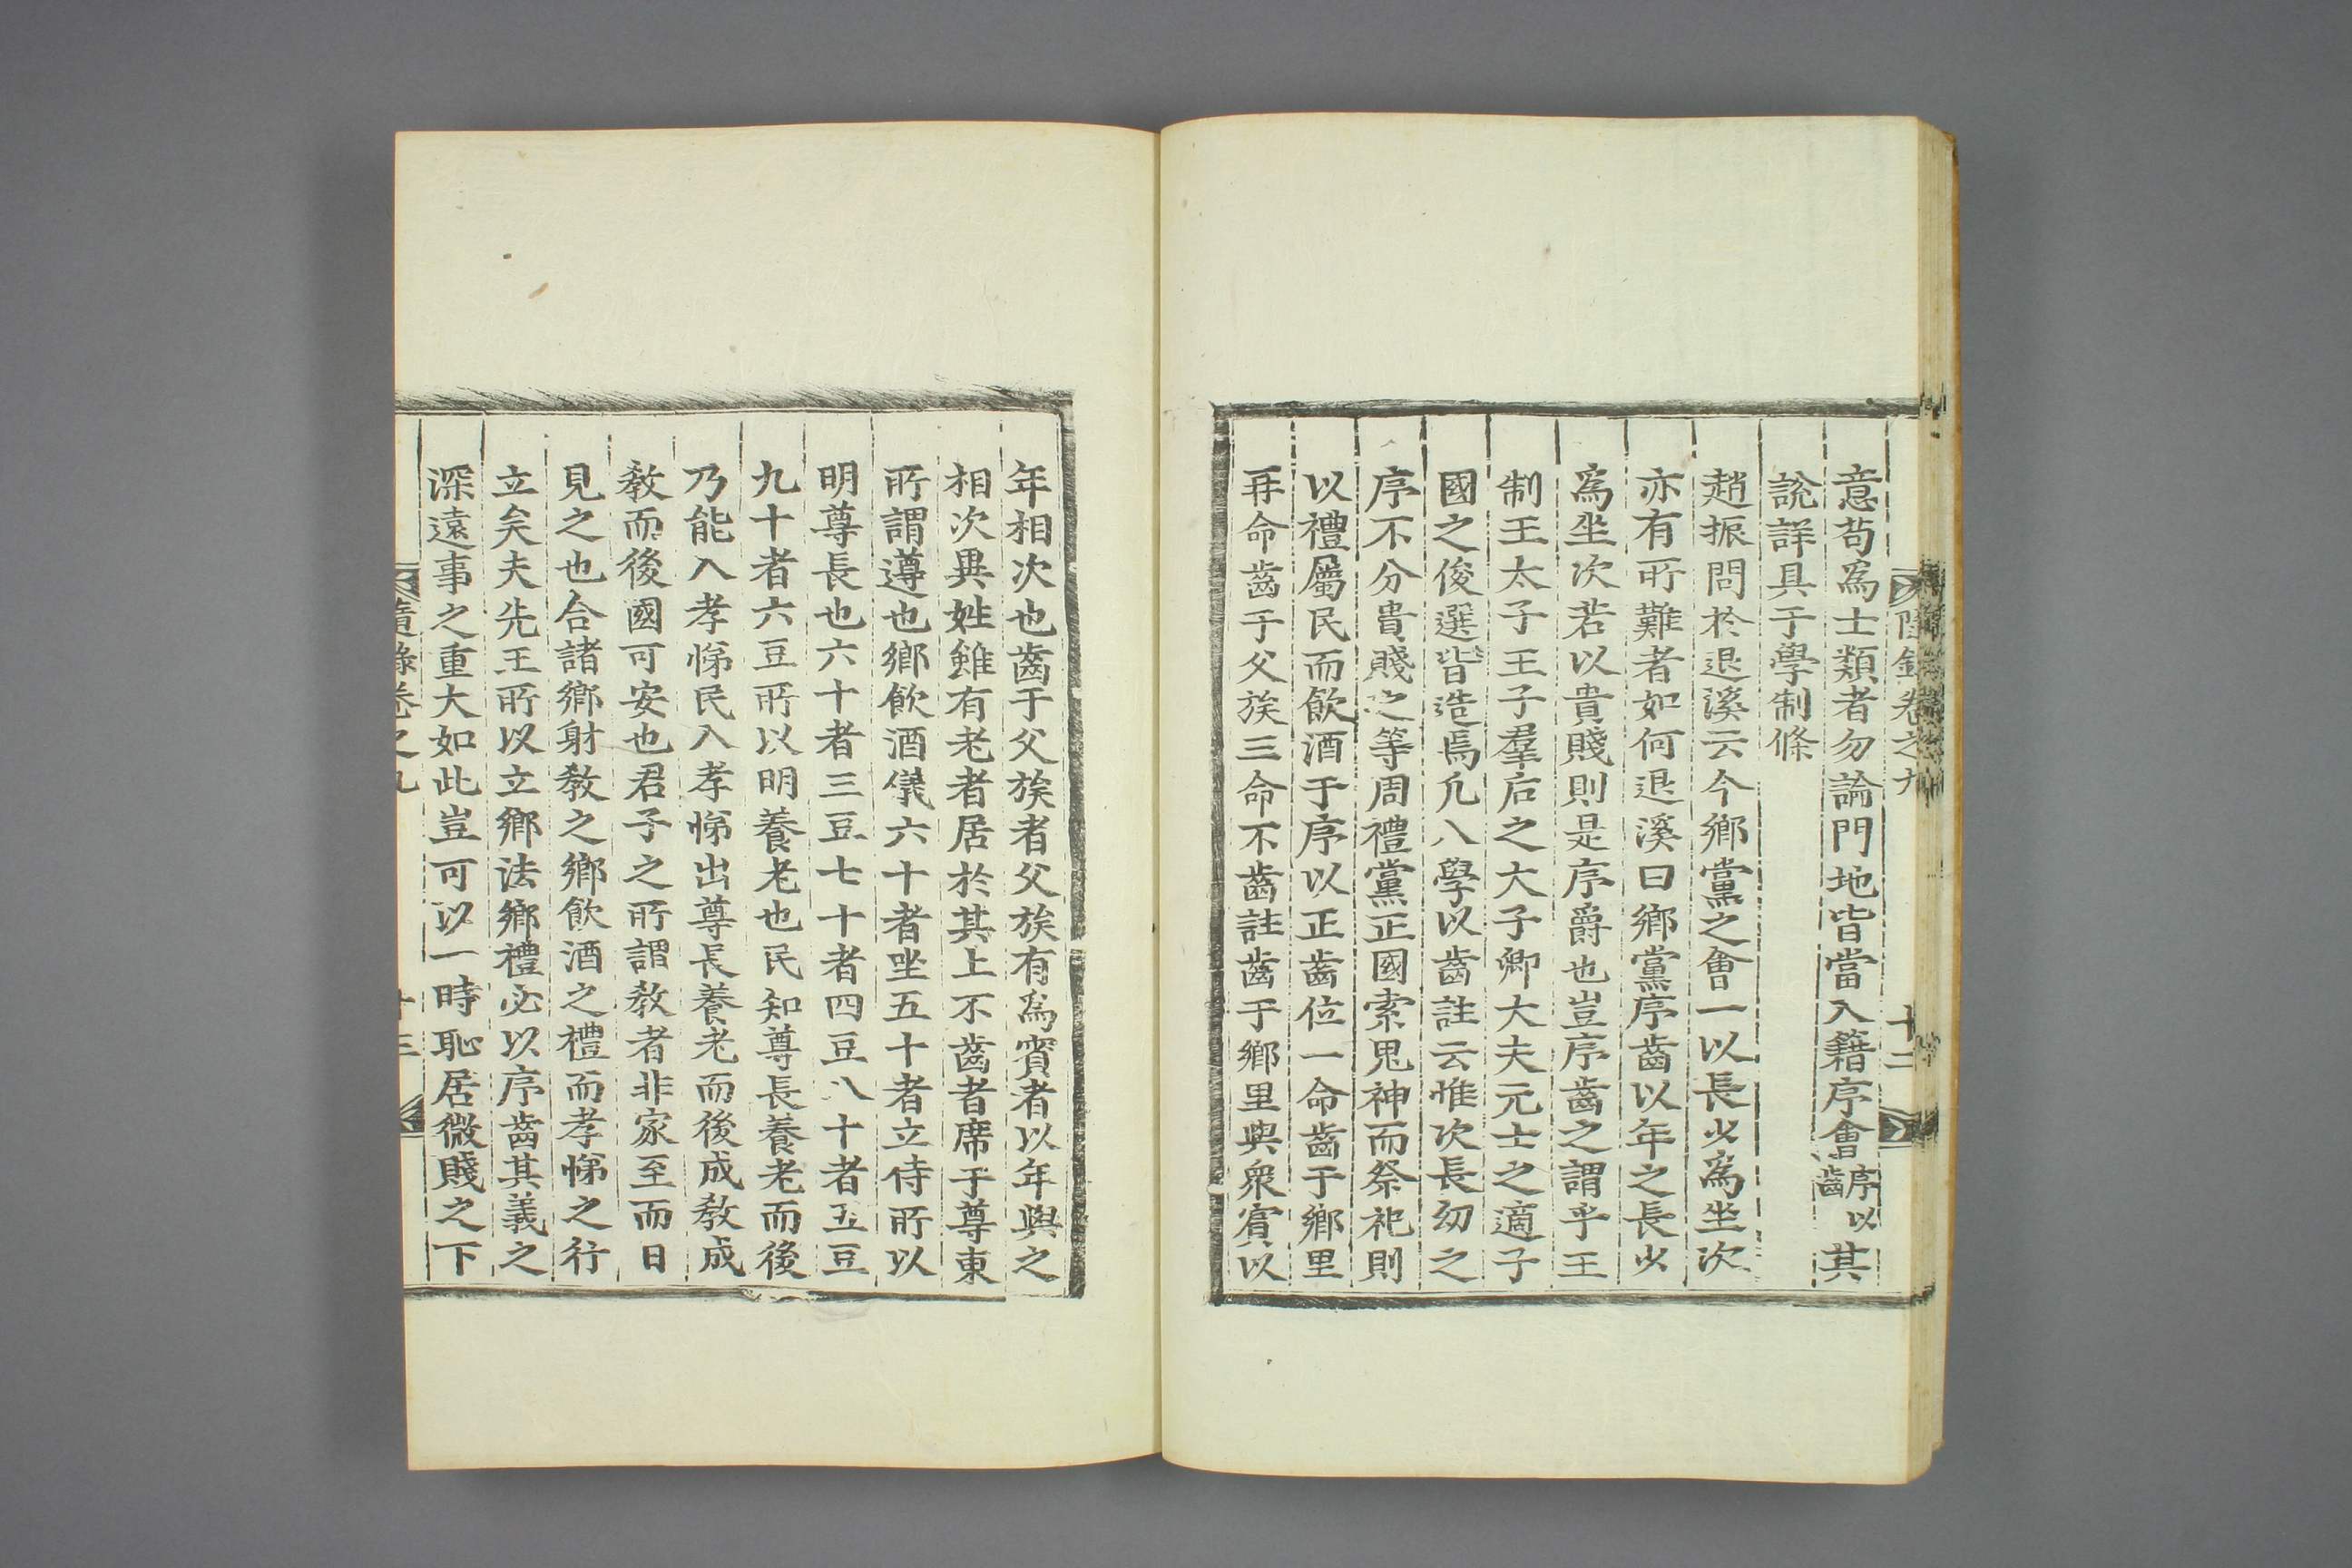 隨錄卷之九 十二
意苟爲士類者勿論門地皆當入籍序會序以齒其
說詳具于學制條
趙振問於退溪云今鄉黨之會一以長少爲坐次
亦有所難者如何退溪曰鄉黨序齒以年之長少
爲坐次若以貴賤則是序爵也豈序齒之謂乎王
制王太子王子羣后之大子卿大夫元士之適子
國之俊選皆造焉凡入學以齒註云惟次長幼之
序不分貴賤之等周禮黨正國索鬼神而祭祀則
以禮屬民而飮酒于序以正齒位一命齒于鄉里
再命齒于父族三命不齒註齒于鄉里與衆賓以
年相次也齒于父族者父族有爲賓者以年與之
相次異姓雖有老者居於其上不齒者席于尊東
所謂遵也鄉飮酒儀六十者坐五十者立侍所以
明尊長也六十者三豆七十者四豆八十者五豆
九十者六豆所以明養老也民知尊長養老而後
乃能入孝悌民入孝悌出尊長養老而後成敎成
敎而後國可安也君子之所謂敎者非家至而日
見之也合諸鄉射敎之鄉飮酒之禮而孝悌之行
立矣夫先王所以立鄉法鄉禮必以序齒其義之
深遠事之重大如此豈可以一時恥居微賤之下
隨錄卷之九 十三